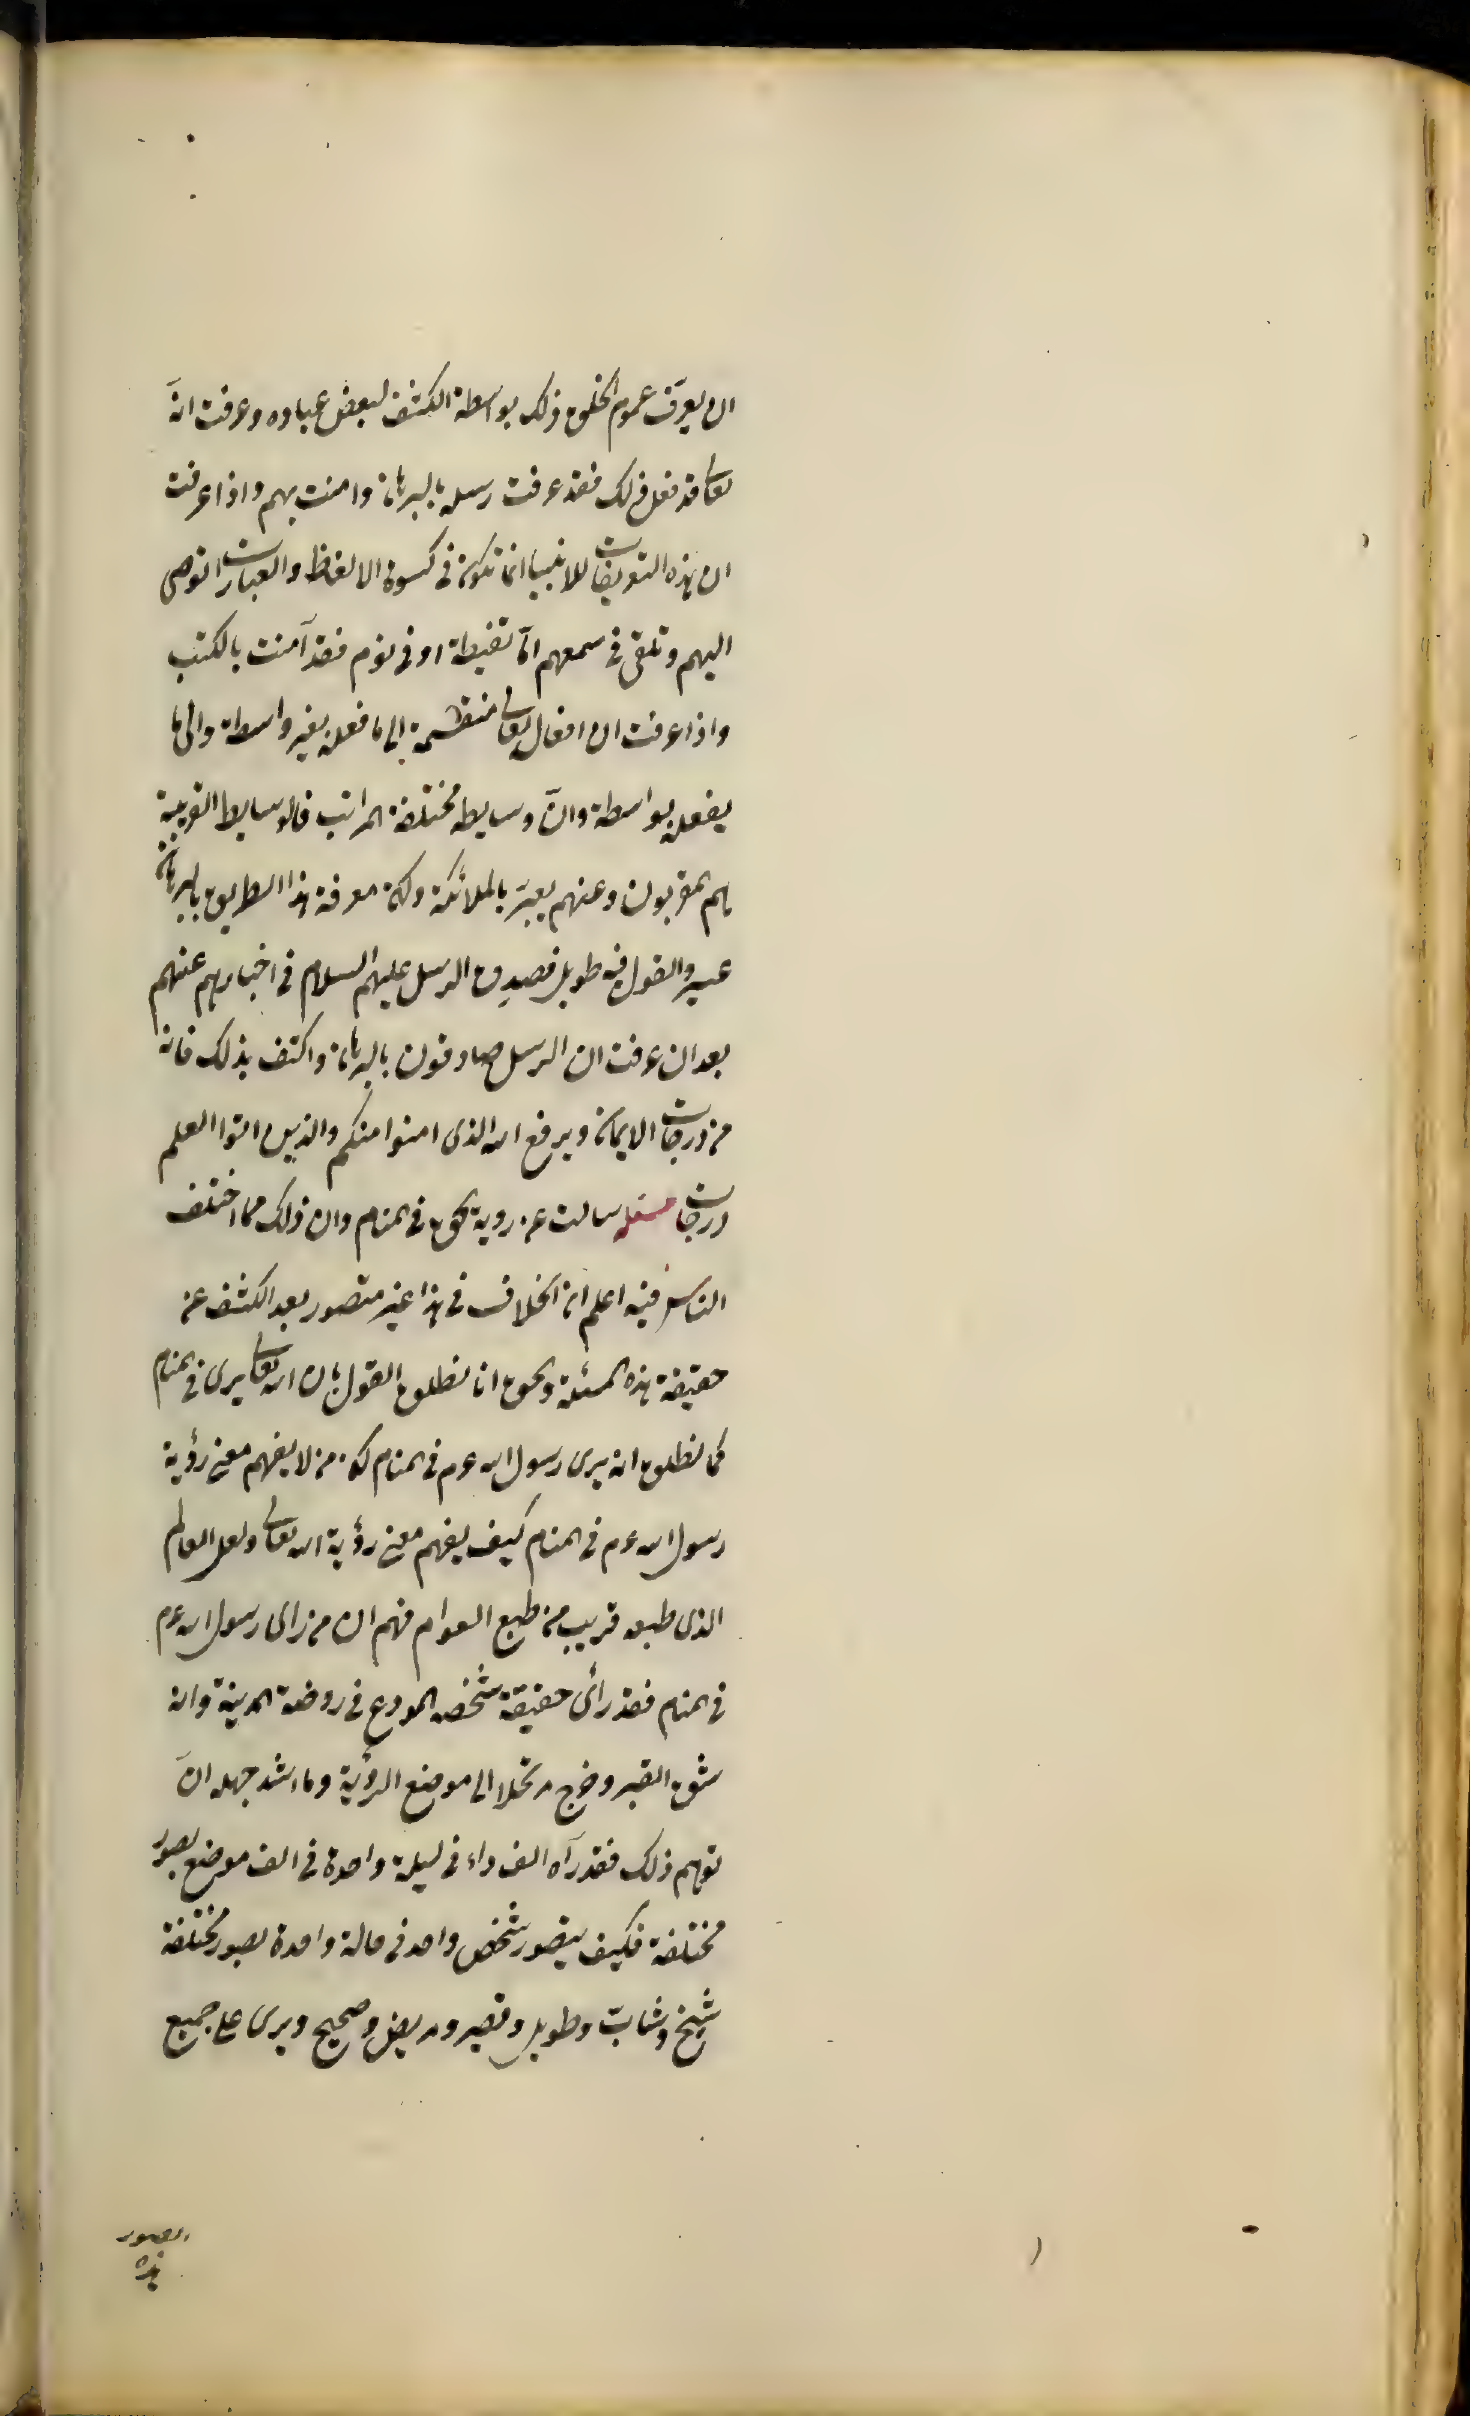 ان يعرّف عموم الخلق ذلك بواسطة الكشف لبعض عباده وعرفت انّه
تعالى قد فعل ذلك فقد عرفت رسله بالبرهان وامنت بهم واذا عرفت
ان هذه التعريفات للانبيا انما تكون في كسوة الالفاظ والعبارات التوصى
اليهم وتلقى في سمعهم امّا تقيظة او في نوم فقد آمنت بالكتب
واذا عرفت ان افعال تعالى منقسمة الى ما فعله بغير واسطة والى ما
يفعله بواسطة وانّ وسايطه مختلفة المراتب فالوسايط القريبة
هم المقربون وعنهم يعبّر بالملائكة ولكن معرفة هذا الطريق بالبرهان
عسير والقول فيه طويل فصدق الرسل عليهم السلام في اخبارهم عنهم
بعد ان عرفت ان الرسل صادقون بالبرهان واكتف بذلك فانه
من درجات الايمان ويرفع الله الذى امنوا منكم والذين اتوا العلم
درجات مسئله سالت عن روية الحق في المنام وان ذلك مما اختلف
الناس فيه اعلم ان الخلاف في هذا غير متصور بعد الكشف عن
حقيقة هذه المسئلة والحق انا نطلق القول بان الله تعالى يرى في المنام
كما نطلق انه يرى رسول الله عم في المنام لكن من لا يفهم معنى رؤية
رسول الله عم في المنام كيف يفهم معنى رؤية الله تعالى ولعل العالم
الذى طبعه قريب من طبع العوام فهم ان من راى رسول الله عم
في المنام فقد رأى حقيقة شخصه المودع في روضة المدينة وانه
شق القبر وخرج مرتحلا الى موضع الرؤية وما اشد جهله انّ
توهم ذلك فقد رآه الف راء في ليلة واحدة في الف موضع بصور
مختلفة فكيف يتصور شخص واحد في حالة واحدة بصور مختلفة
شيخ وشابّ وطويل وقصير ومريض وصحيح ويرى على جميع
الصور
هذه